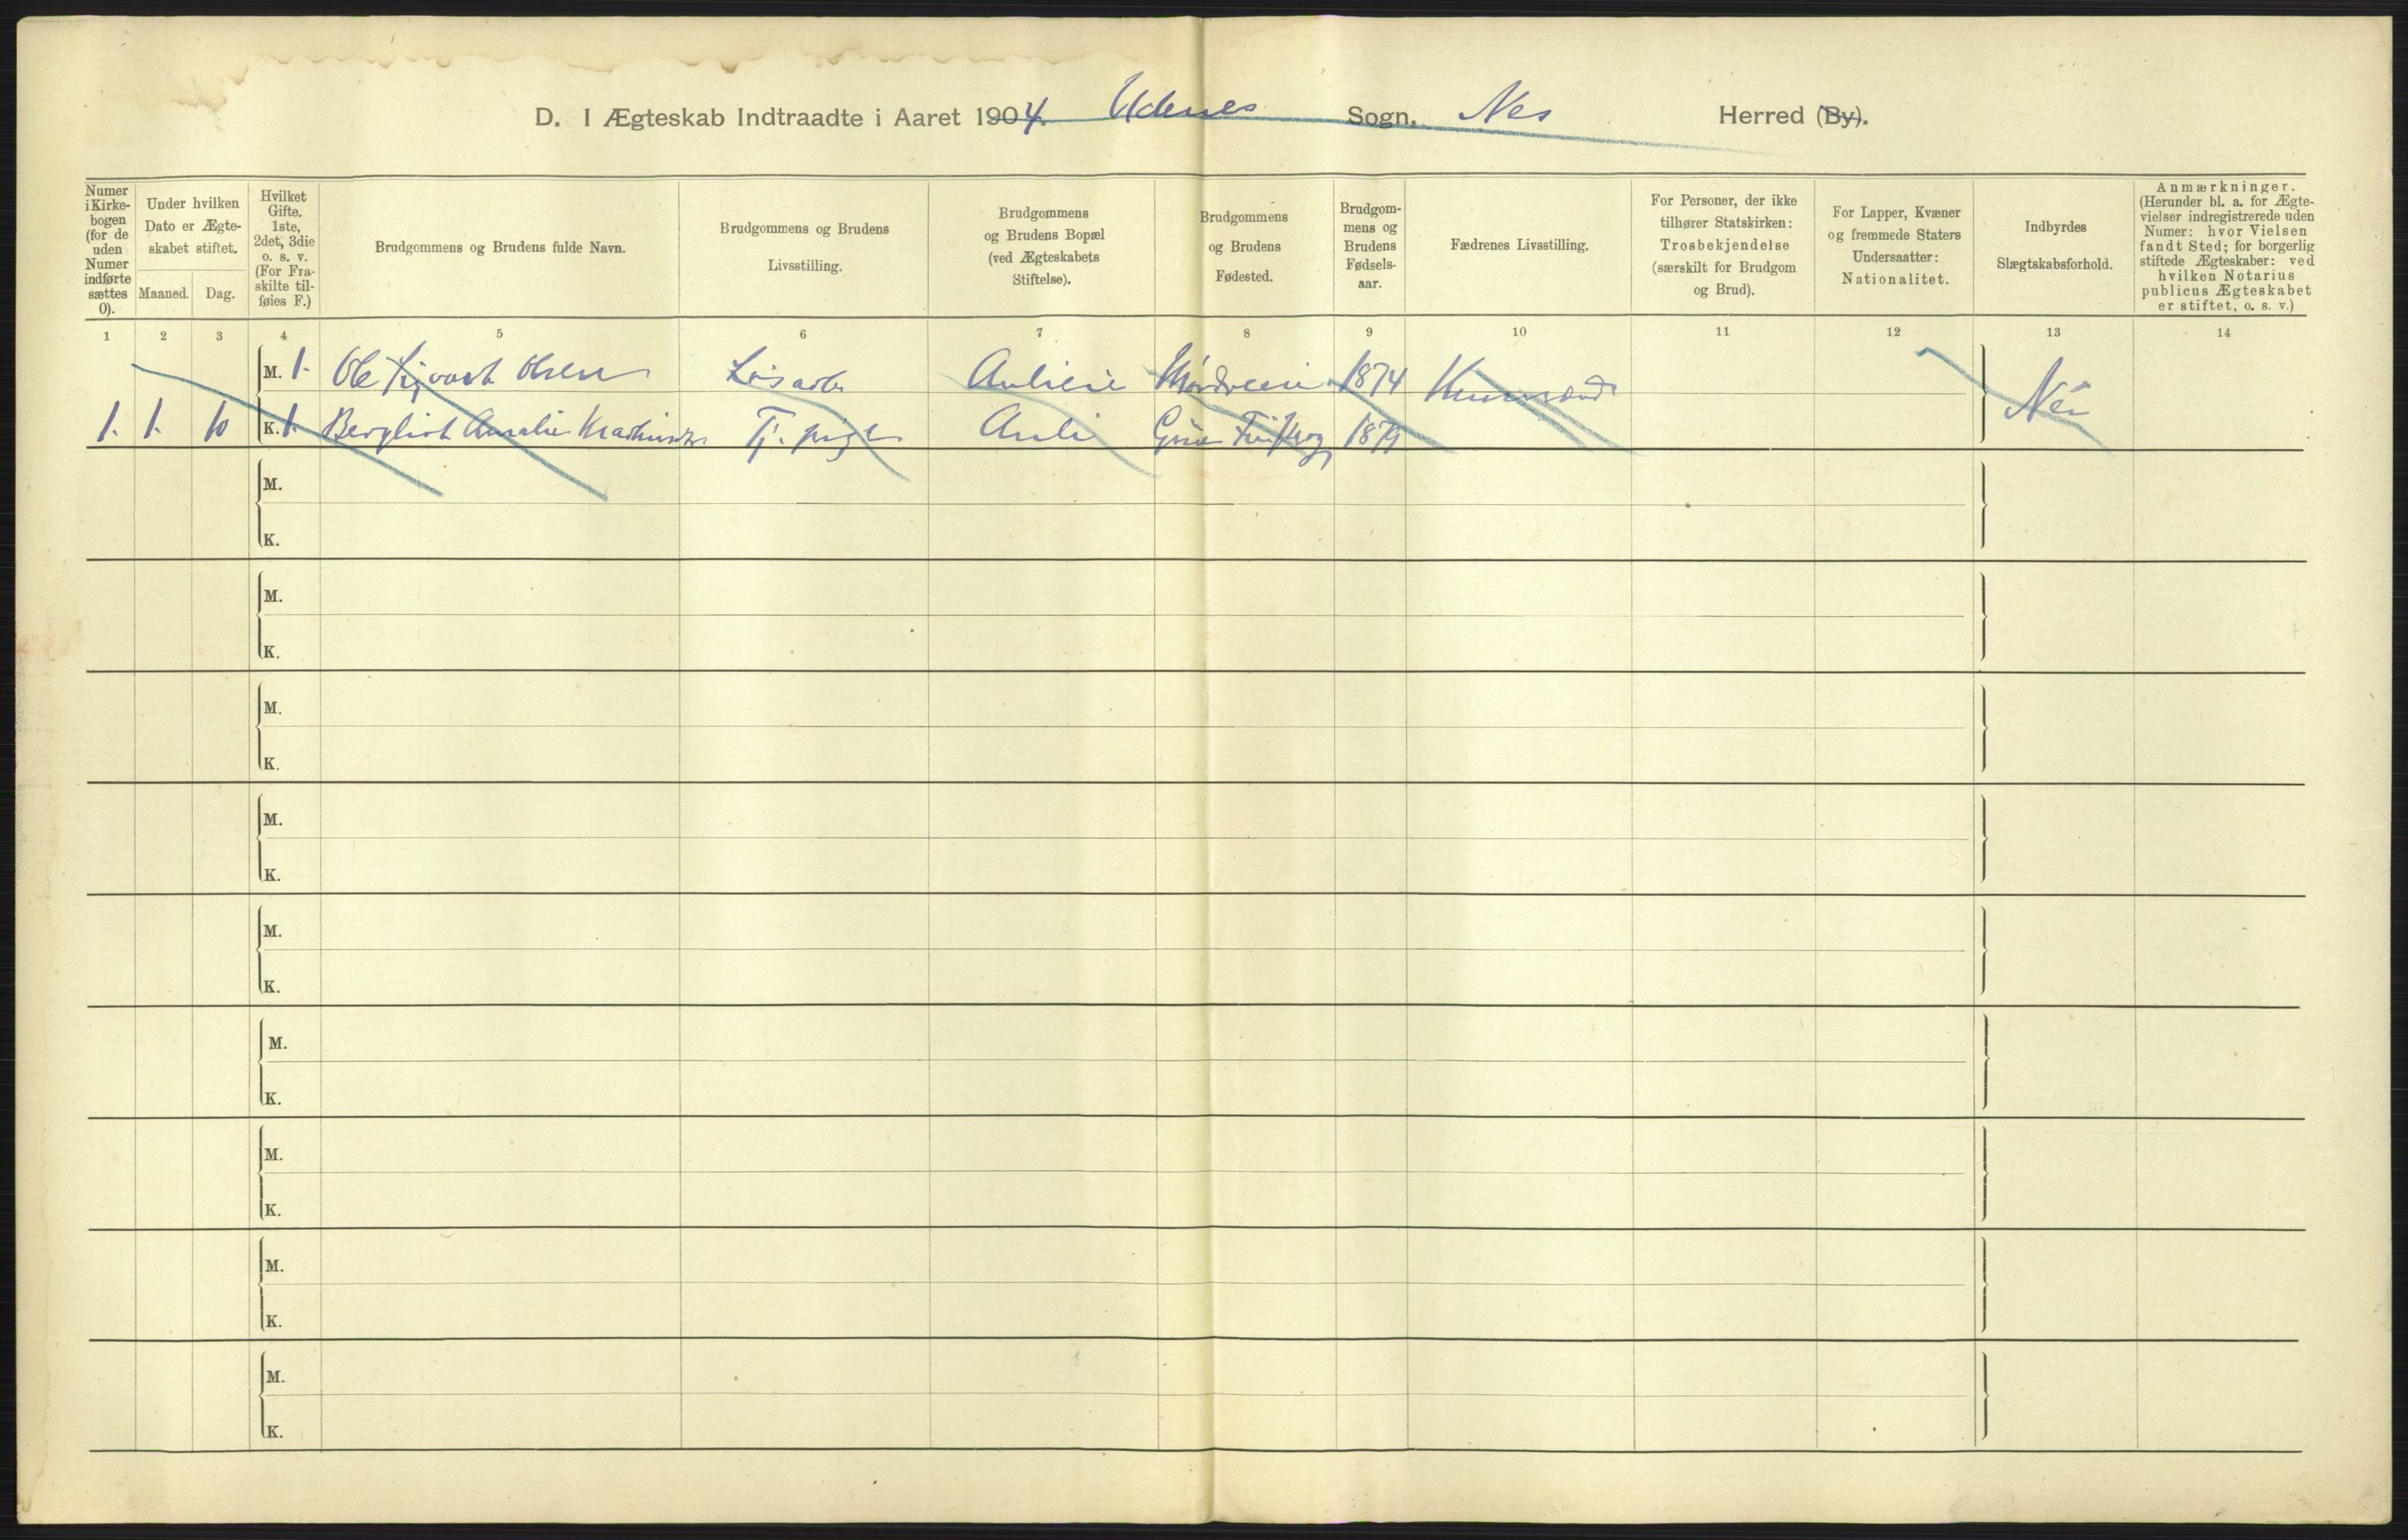 D. I Ægteskab Indtraadte i Aaret 1904. Udenes Sogn. Nes Herred (By).
Numer i Kirke-bogen (for de uden Numer indførte sættes 0).
Under hvilken Dato er Ægte-skabet stiftet.
Maaned. Dag.
Hvilket Gifte. 1ste, 2det, 3die o. s. v. (For Fra-skilte til-føies F.)
Brudgommens og Brudens fulde Navn.
Brudgommens og Brudens Livsstilling.
Brudgommens og Brudens Bopæl (ved Ægteskabets Stiftelse).
Brudgommens og Brudens Fødested.
Brudgom-mens og Brudens Fødsels-aar.
Fædrenes Livsstilling.
For Personer, der ikke tilhører Statskirken: Trosbekjendelse (særskilt for Brudgom og Brud).
For Lapper, Kvæner og fremmede Staters Undersaatter: Nationalitet.
Indbyrdes Slægtskabsforhold.
Anmærkninger. (Herunder bl. a. for Ægte-vielser indregistrerede uden Numer: hvor Vielsen fandt Sted; for borgerlig stiftede Ægteskaber: ved hvilken Notarius publicus Ægteskabet er stiftet, o. s. v.)
1 2 3 4 5 6 7 8 9 10 11 12 13 14
M. 1. Ole Sigvart Olsen Løsarb Aulieie 1874 Husmænd
1. 1. 10 K. 1. Bergliot Amalie Tj. pige Auli Grue Finskog 1879 Nei
M.
K.
M.
K.
M.
K.
M.
K.
M.
K.
M.
K.
M.
K.
M.
K.
M.
K.